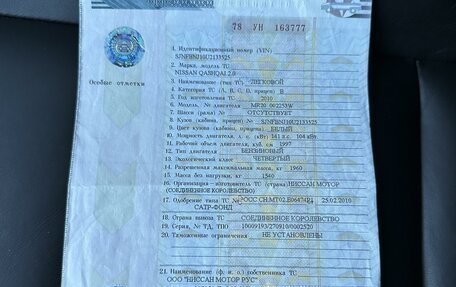 78 УН 163777
1. Идентификационный номер (VIN)
SJNFBNJ10U2133525
2. Марка, модель ТС
NISSAN QASHQAI 2.0
Особые отметки
3. Наименование (тип ТС) ЛЕГКОВОЙ
4. Категория ТС (А, В, С, D, прицеп) B
5. Год изготовления ТС 2010
6. Модель, № двигателя MR20 002253W
7. Шасси (рама) № ОТСУТСТВУЕТ
8. Кузов (кабина, прицеп) № SJNFBNJ10U2133525
9. Цвет кузова (кабины, прицепа) БЕЛЫЙ
10. Мощность двигателя, л. с. (кВт) 141 л.с. 104 кВт
11. Рабочий объем двигателя, куб. см 1997
12. Тип двигателя БЕНЗИНОВЫЙ
13. Экологический класс ЧЕТВЕРТЫЙ
14. Разрешенная максимальная масса, кг 1960
15. Масса без нагрузки, кг 1540
16. Организация - изготовитель ТС (страна) НИССАН МОТОР
(СОЕДИНЕННОЕ КОРОЛЕВСТВО)
17. Одобрение типа ТС № РОСС GB.МТ02.E06474P1 25.02.2010
САТР-ФОНД
18. Страна вывоза ТС СОЕДИНЕННОЕ КОРОЛЕВСТВО
19. Серия, № ТД, ТПО 10009193/270910/0002520
20. Таможенные ограничения НЕ УСТАНОВЛЕНЫ
21. Наименование (ф. и. о.) собственника ТС
ООО "НИССАН МОТОР РУС"